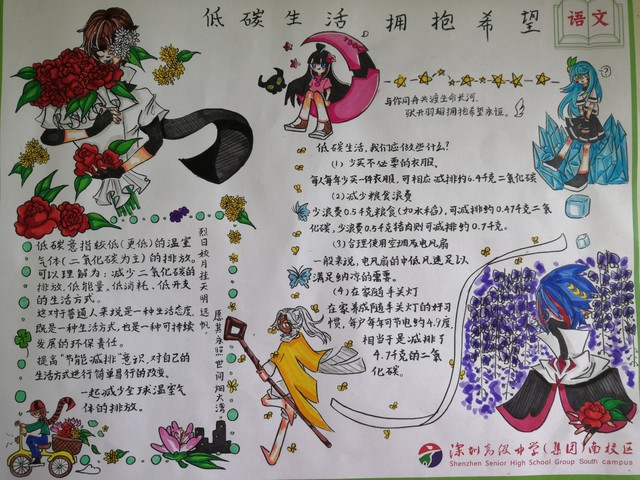 低碳生活 拥抱希望
语文
与你同舟共渡生命长河,
跃开羽翅拥抱希望永恒。
低碳生活,我们应做些什么?
(1) 少买不必要的衣服、
每人每年少买一件衣服,可相应减排约6.4千克二氧化碳
(2)减少粮食浪费
少浪费0.5千克粮食(如水稻),可减排约0.47千克二氧
化碳,少浪费0.5千克猪肉则可减排约0.7千克。
(3)合理使用空调及电风扇
一般来说,电风扇的中低风速足以
满足纳凉的需要。
(4)在家随手关灯
在家养成随手关灯的好习
惯,每户每年可节电约4.9度,
相当于是减排了
4.7千克的二氧
化碳。
低碳意指较低(更低)的温室
气体(二氧化碳为主)的排放。
可以理解为:减少二氧化碳的
排放,低能量,低消耗,低开支
的生活方式。
这对于普通人来说是一种生活态度,
既是一种生活方式,也是一种可持续
发展的环保责任。
提高“节能减排”意识,对自己的
生活方式进行简单易行的改变。
一起减少全球温室气
体的排放。
烈日皎月挂天明送帆,
愿其永照世间烟火湾。
?
深圳高级中学(集团)南校区
Shenzhen Senior High School Group South campus